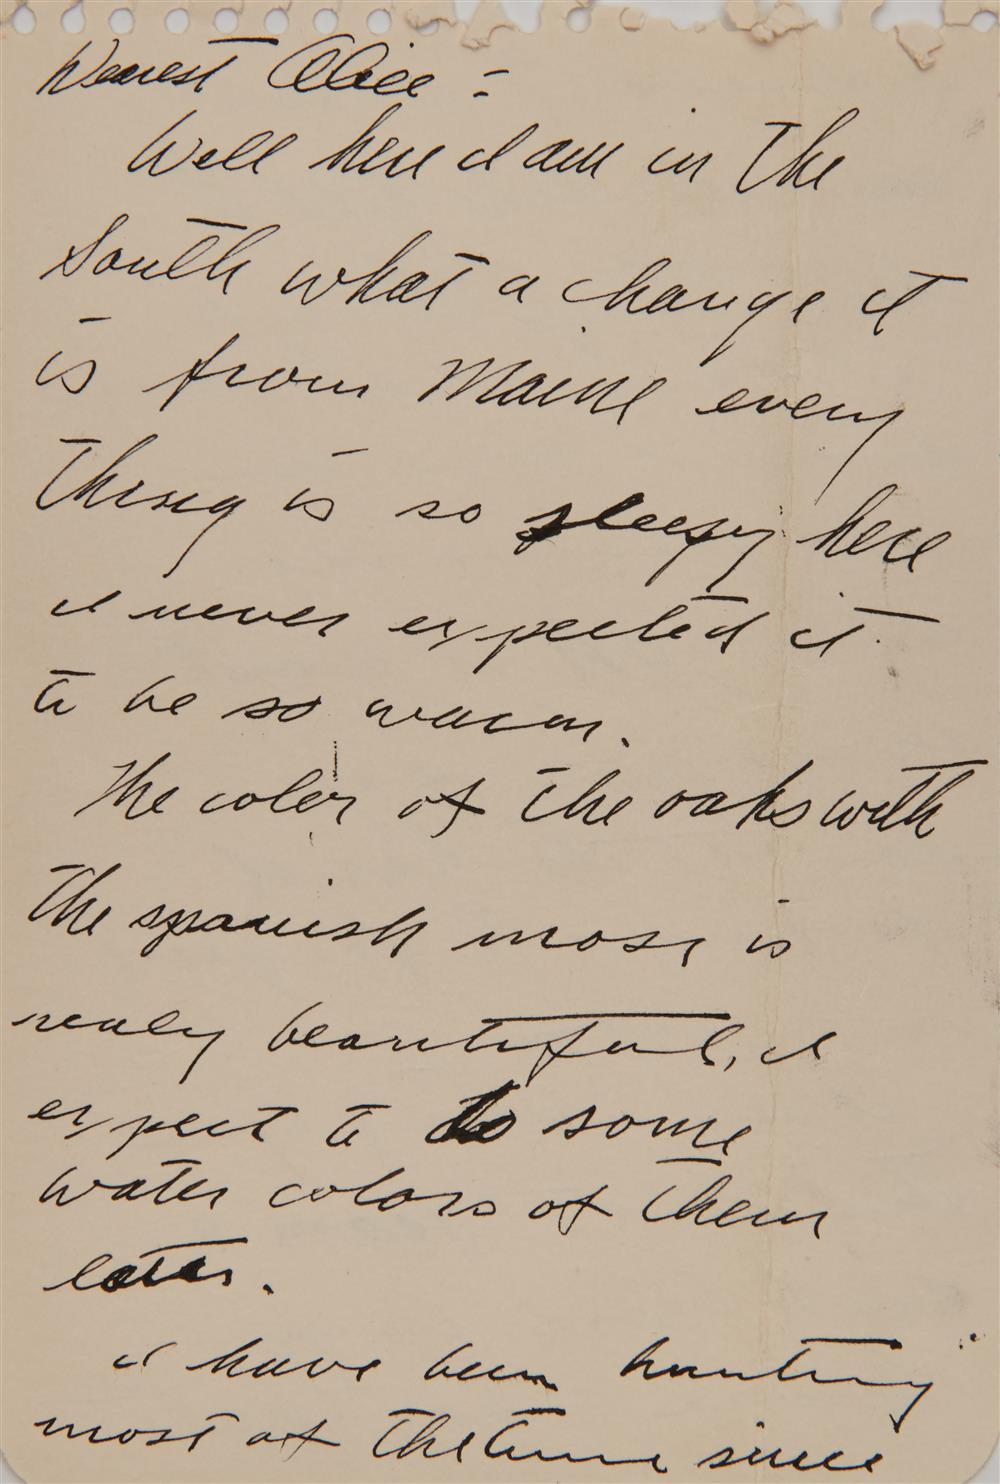 Dearest Alice =
Well here I am in the
South what a change it
is from Maine every
thing is so sleepy here
I never expected it
to be so warm.
The color of the oaks with
the spanish moss is
realy beautiful, I
expect to do some
water colors of them
later.
I have been hunting
most of the time since